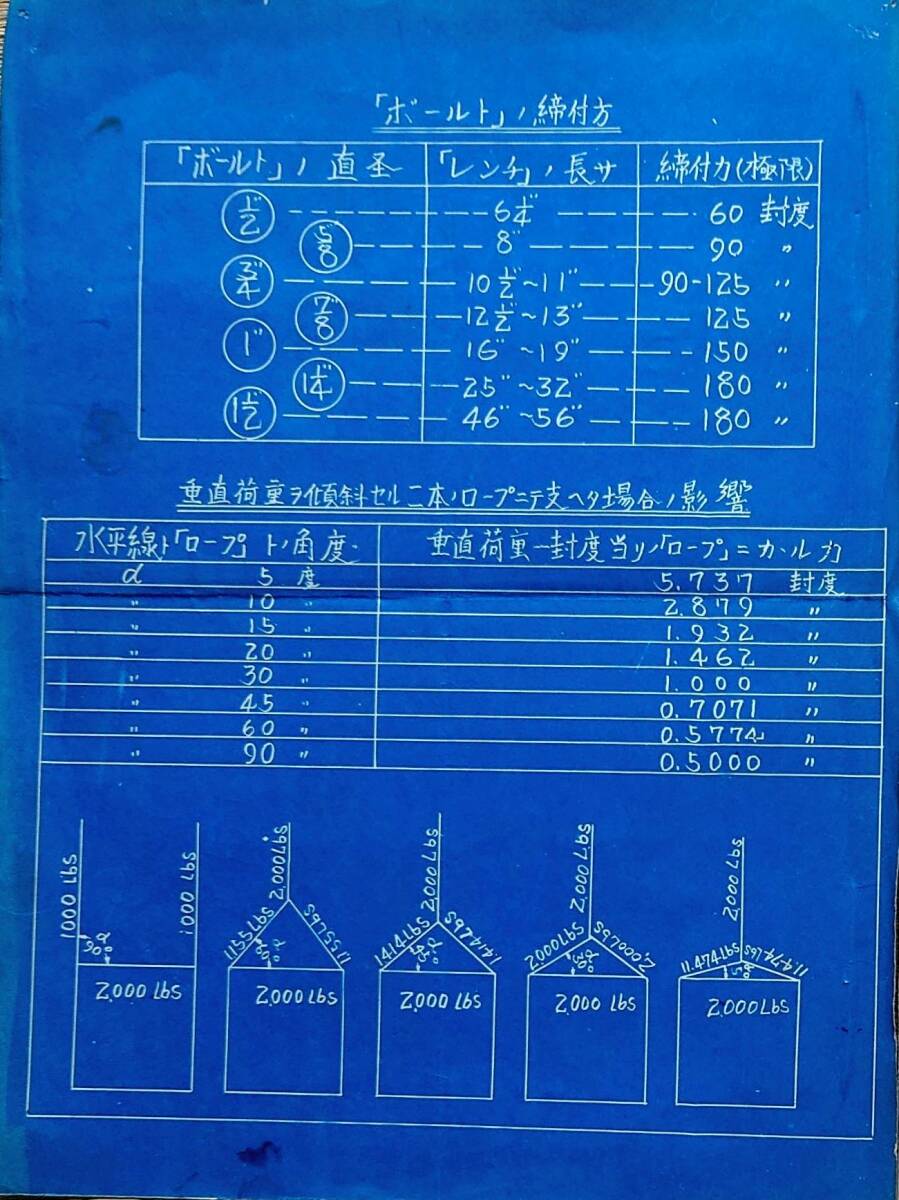 「ボールト」ノ締付方
「ボールト」ノ直圣 「レンチ」ノ長サ 締付力(極限)
1/2" 6 1/4" 60 封度
5/8" 8" 90 〃
3/4" 10 1/2"~11" 90-125 〃
7/8" 12 1/2"~13" 125 〃
1" 16"~19" 150 〃
1 1/4" 25"~32" 180 〃
1 1/2" 46"~56" 180 〃
垂直荷重ヲ傾斜セル二本ノロープニテ支ヘタ場合ノ影響
水平線ト「ロープ」トノ角度 垂直荷重一封度当リノ「ロープ」ニカヽル力
α 5 度 5.737 封度
〃 10 〃 2.879 〃
〃 15 〃 1.932 〃
〃 20 〃 1.462 〃
〃 30 〃 1.000 〃
〃 45 〃 0.7071 〃
〃 60 〃 0.5774 〃
〃 90 〃 0.5000 〃
1000 Lbs
1000 Lbs
α
90°
2,000 Lbs
2,000 Lbs
1155 Lbs
1155 Lbs
α
60°
2,000 Lbs
2,000 Lbs
1414 Lbs
1414 Lbs
α
45°
2,000 Lbs
2,000 Lbs
2,000 Lbs
2,000 Lbs
α
30°
2,000 Lbs
2,000 Lbs
11.474 Lbs
11.474 Lbs
α
5°
2,000 Lbs